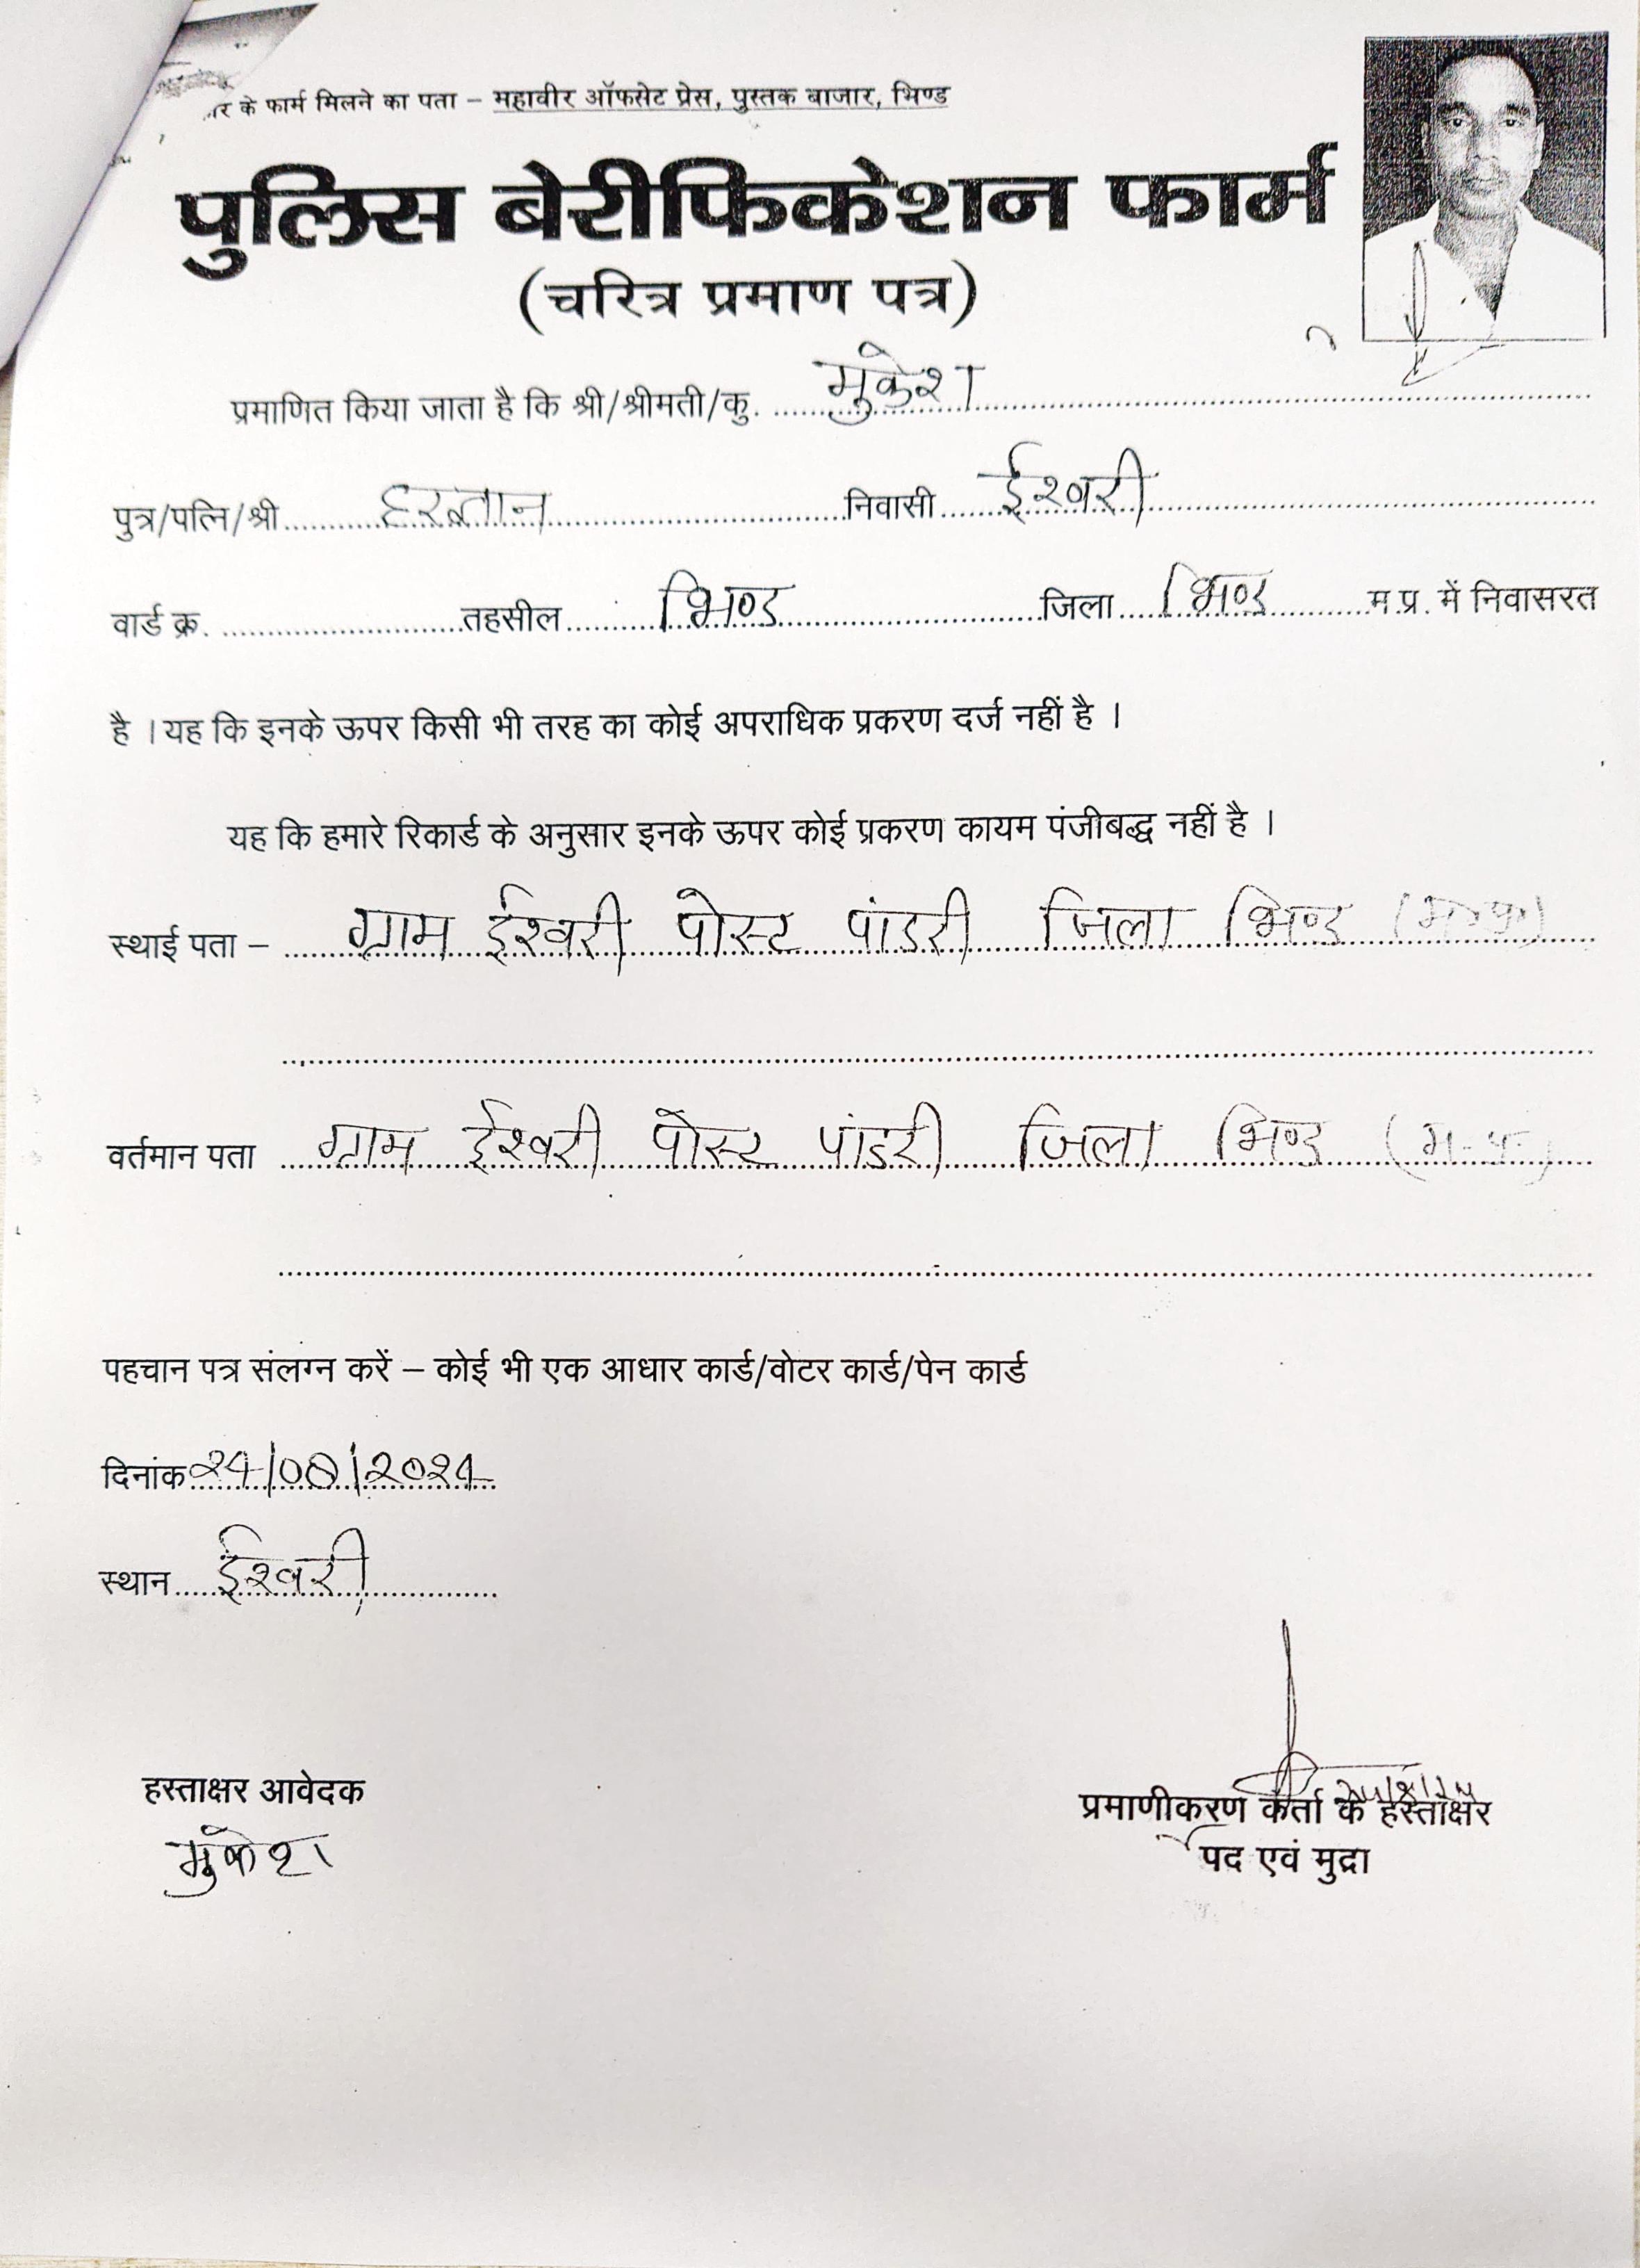 के फार्म मिलने का पता – महावीर ऑफसेट प्रेस, पुस्तक बाजार, भिण्ड
पुलिस बेरीफिकेशन फार्म
(चरित्र प्रमाण पत्र)
प्रमाणित किया जाता है कि श्री/श्रीमती/कु. मुकेश
पुत्र/पत्नि/श्री निवासी ईश्वरी
वार्ड क्र. तहसील भिण्ड जिला भिण्ड म.प्र. में निवासरत
है । यह कि इनके ऊपर किसी भी तरह का कोई अपराधिक प्रकरण दर्ज नहीं है ।
यह कि हमारे रिकार्ड के अनुसार इनके ऊपर कोई प्रकरण कायम पंजीबद्ध नहीं है ।
स्थाई पता – ग्राम ईश्वरी पोस्ट पांडरी जिला भिण्ड (म०प्र०)
वर्तमान पता ग्राम ईश्वरी पोस्ट पांडरी जिला भिण्ड (म.प्र.)
पहचान पत्र संलग्न करें – कोई भी एक आधार कार्ड/वोटर कार्ड/पेन कार्ड
दिनांक 24/08/2024
स्थान ईश्वरी
हस्ताक्षर आवेदक
मुकेश
प्रमाणीकरण कर्ता के हस्ताक्षर
पद एवं मुद्रा